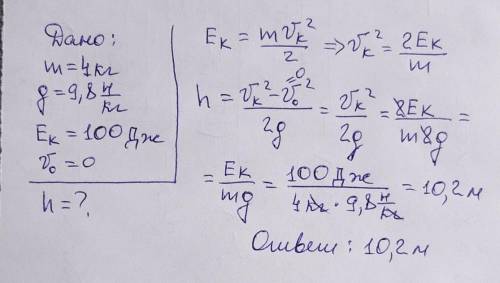 Дано:
m=1кг
g=9,8 Н/кг
Eк=100Дж
v₀=0
h=?
Eк = mvк²/2 ⇒ vк² = 2Eк/m
h = (vк²-v₀²)/2g = vк²/2g = 2Eк/m2g =
=0
= Eк/mg = 100Дж/(1кг · 9,8 Н/кг) = 10,2м
Ответ: 10,2м